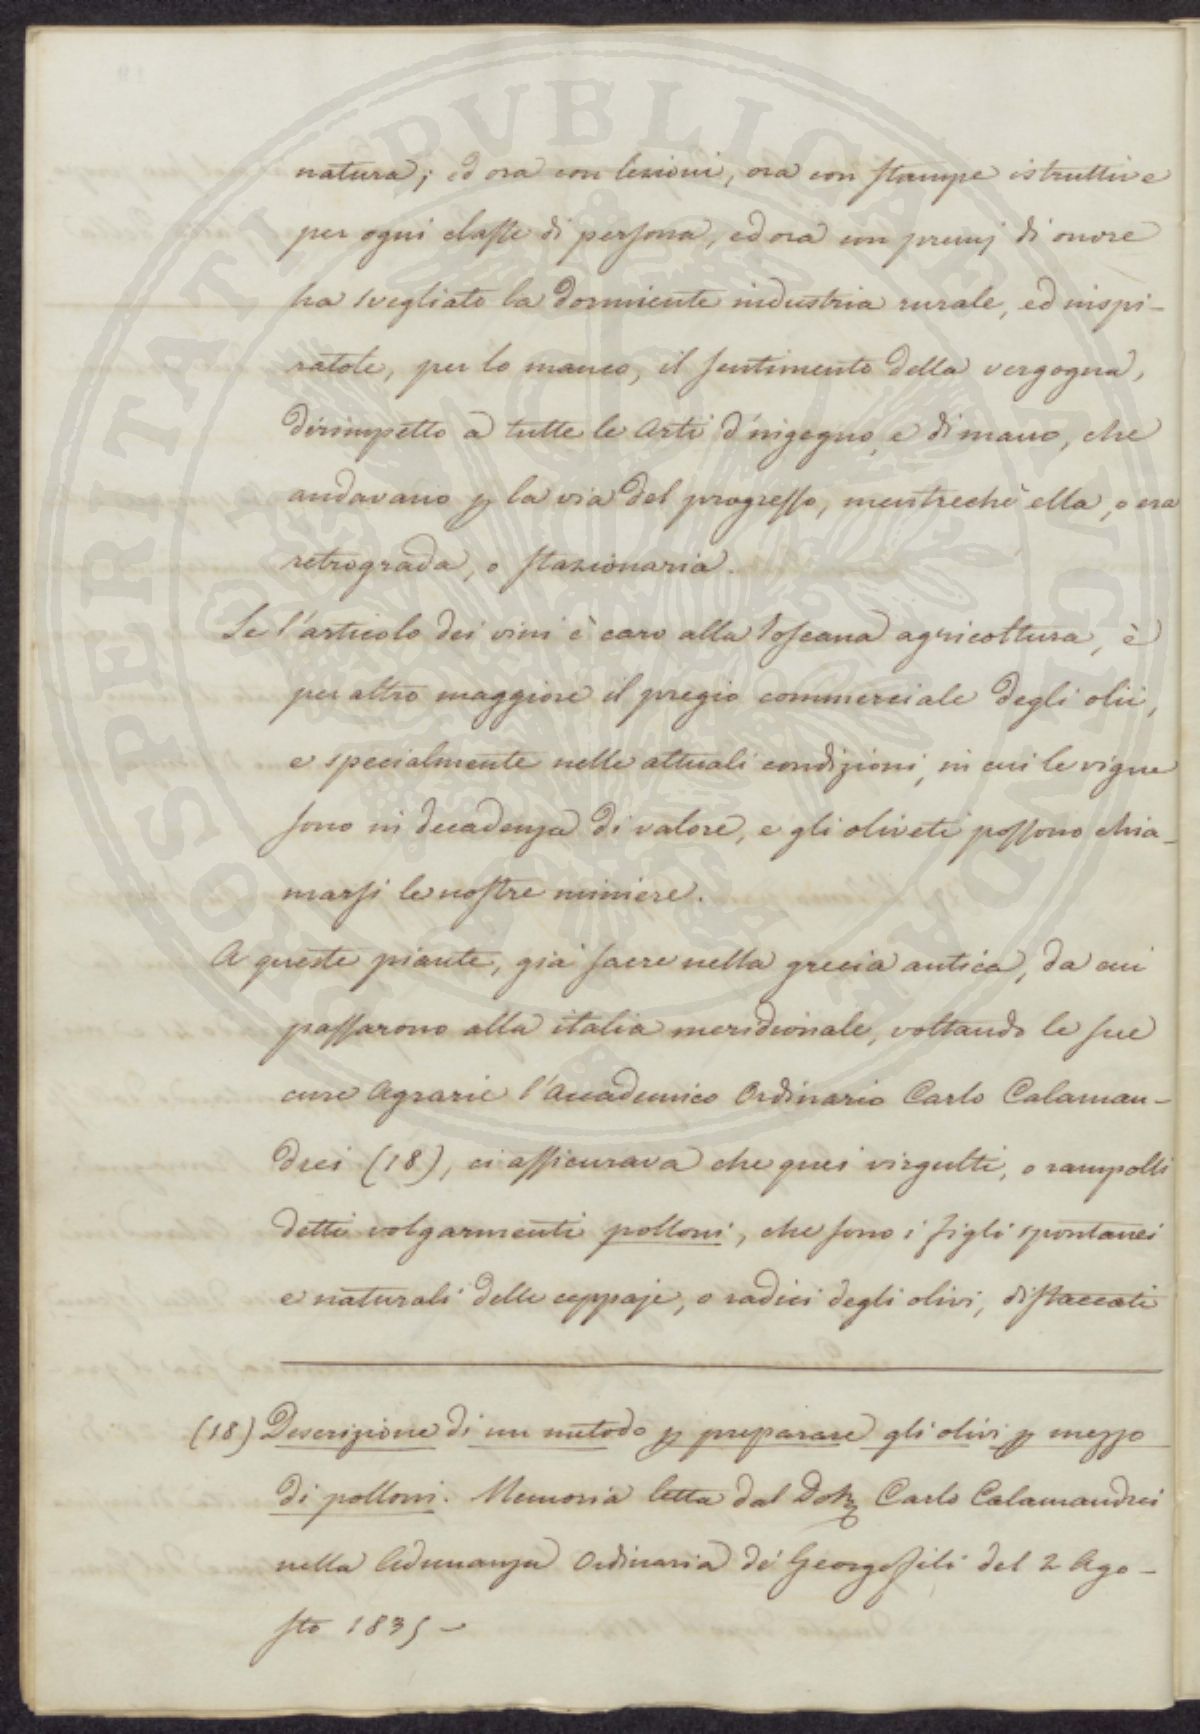 natura; ed ora con lezioni, ora con stampe istruttive
per ogni classe di persona, ed ora con premj di onore
ha svegliato la dormiente industria rurale, ed inspi-
ratole, per lo manco, il sentimento della vergogna,
dirimpetto a tutte le Arti d'ingegno, e di mano, che
andavano p la via del progresso, mentreché ella, o era
retrograda, o stazionaria.
Se l'articolo dei vini è caro alla Toscana agricoltura, è
per altro maggiore il pregio commerciale degli olii,
e specialmente nelle attuali condizioni, in cui le vigne
sono in decadenza di valore, e gli oliveti possono chia-
marsi le nostre miniere.
A queste piante, già sacre nella grecia antica, da cui
passarono alla italia meridionale, voltando le sue
cure Agrarie l'Accademico Ordinario Carlo Calaman-
drei (18), ci assicurava che quei virgulti, o rampolli
detti volgarmenti polloni, che sono i figli spontanei
e naturali delle ceppaje, o radici degli olivi, distaccati
(18) Descrizione di un metodo p preparare gli olivi p mezzo
di polloni. Memoria letta dal Dott. Carlo Calamandrei
nella Adunanza Ordinaria de' Georgofili del 2 Ago-
sto 1835 -
PROSPERITATI PUBLICAE AUGENDAE